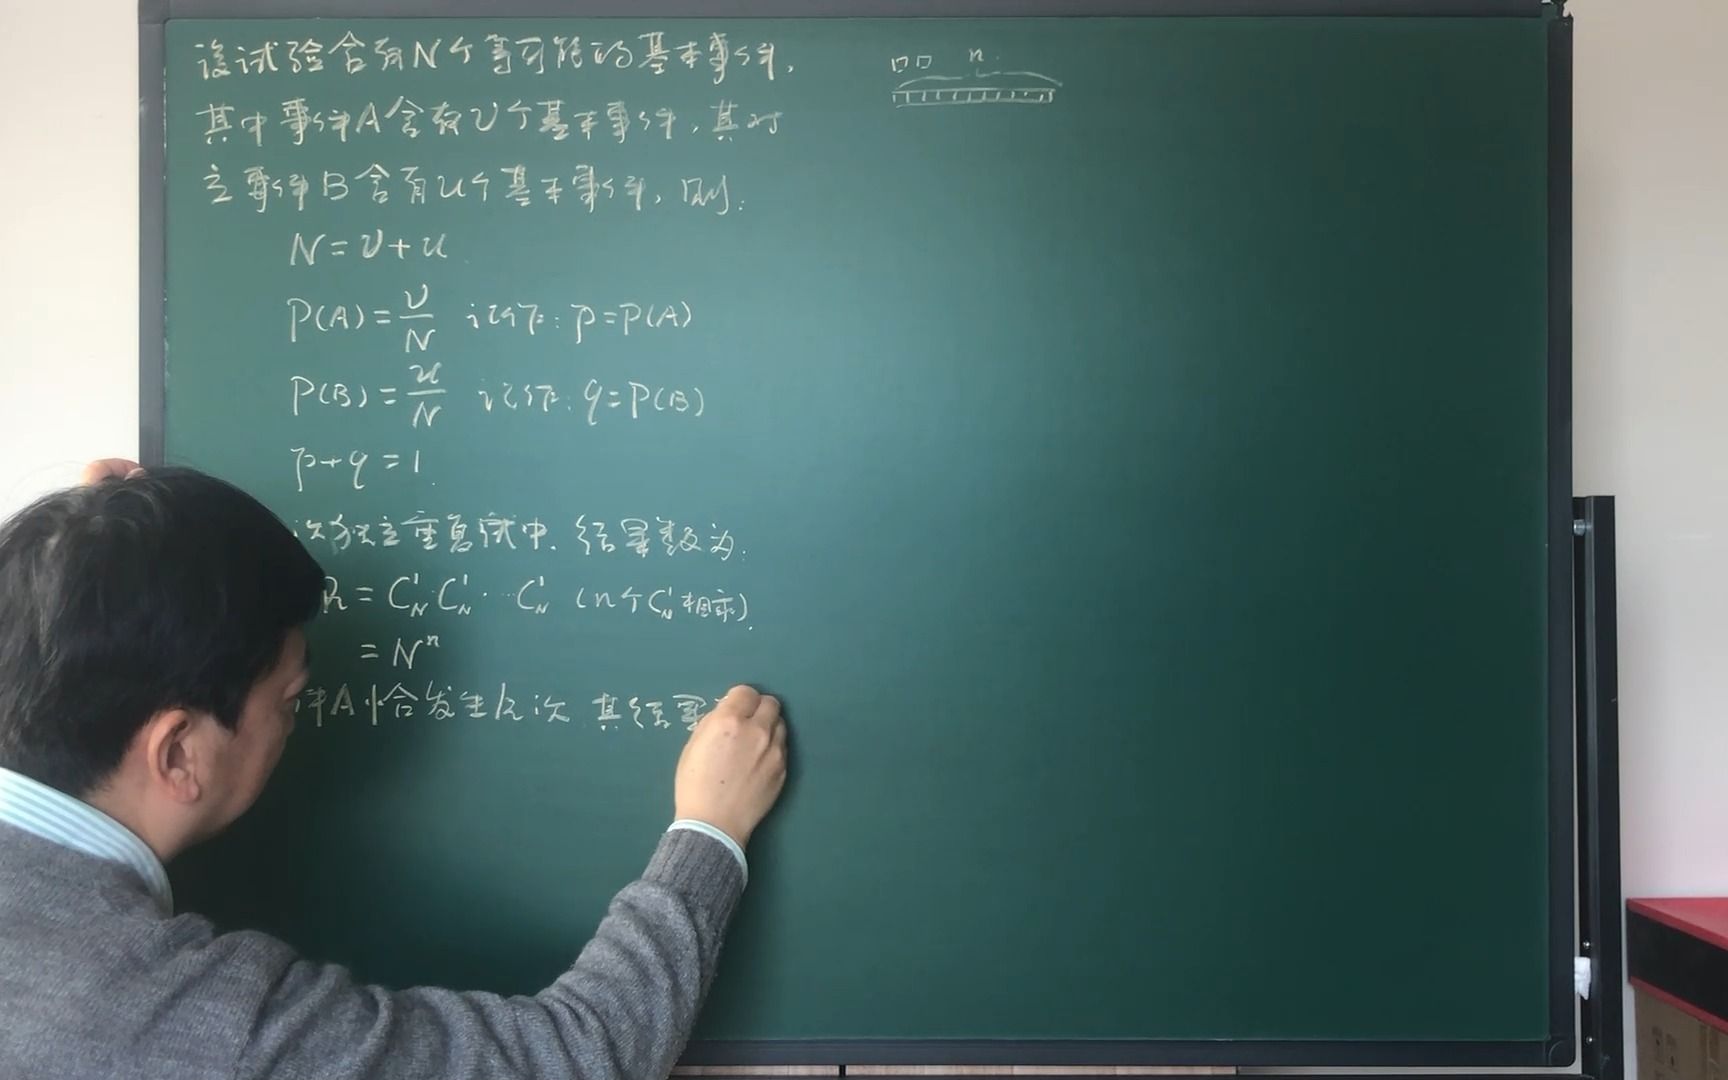 该试验含有N个等可能的基本事件,
其中事件A含有υ个基本事件,其对
立事件B含有u个基本事件,则:
N=υ+u
P(A)=υ/N 记作:p=P(A)
P(B)=u/N 记作:q=P(B)
p+q=1.
次独立重复试中.结果数为:
=C_N^1 C_N^1 ⋯ C_N^1 (n个C_N^1相乘).
=N^n
件A恰发生k次 其结果
□□ n.